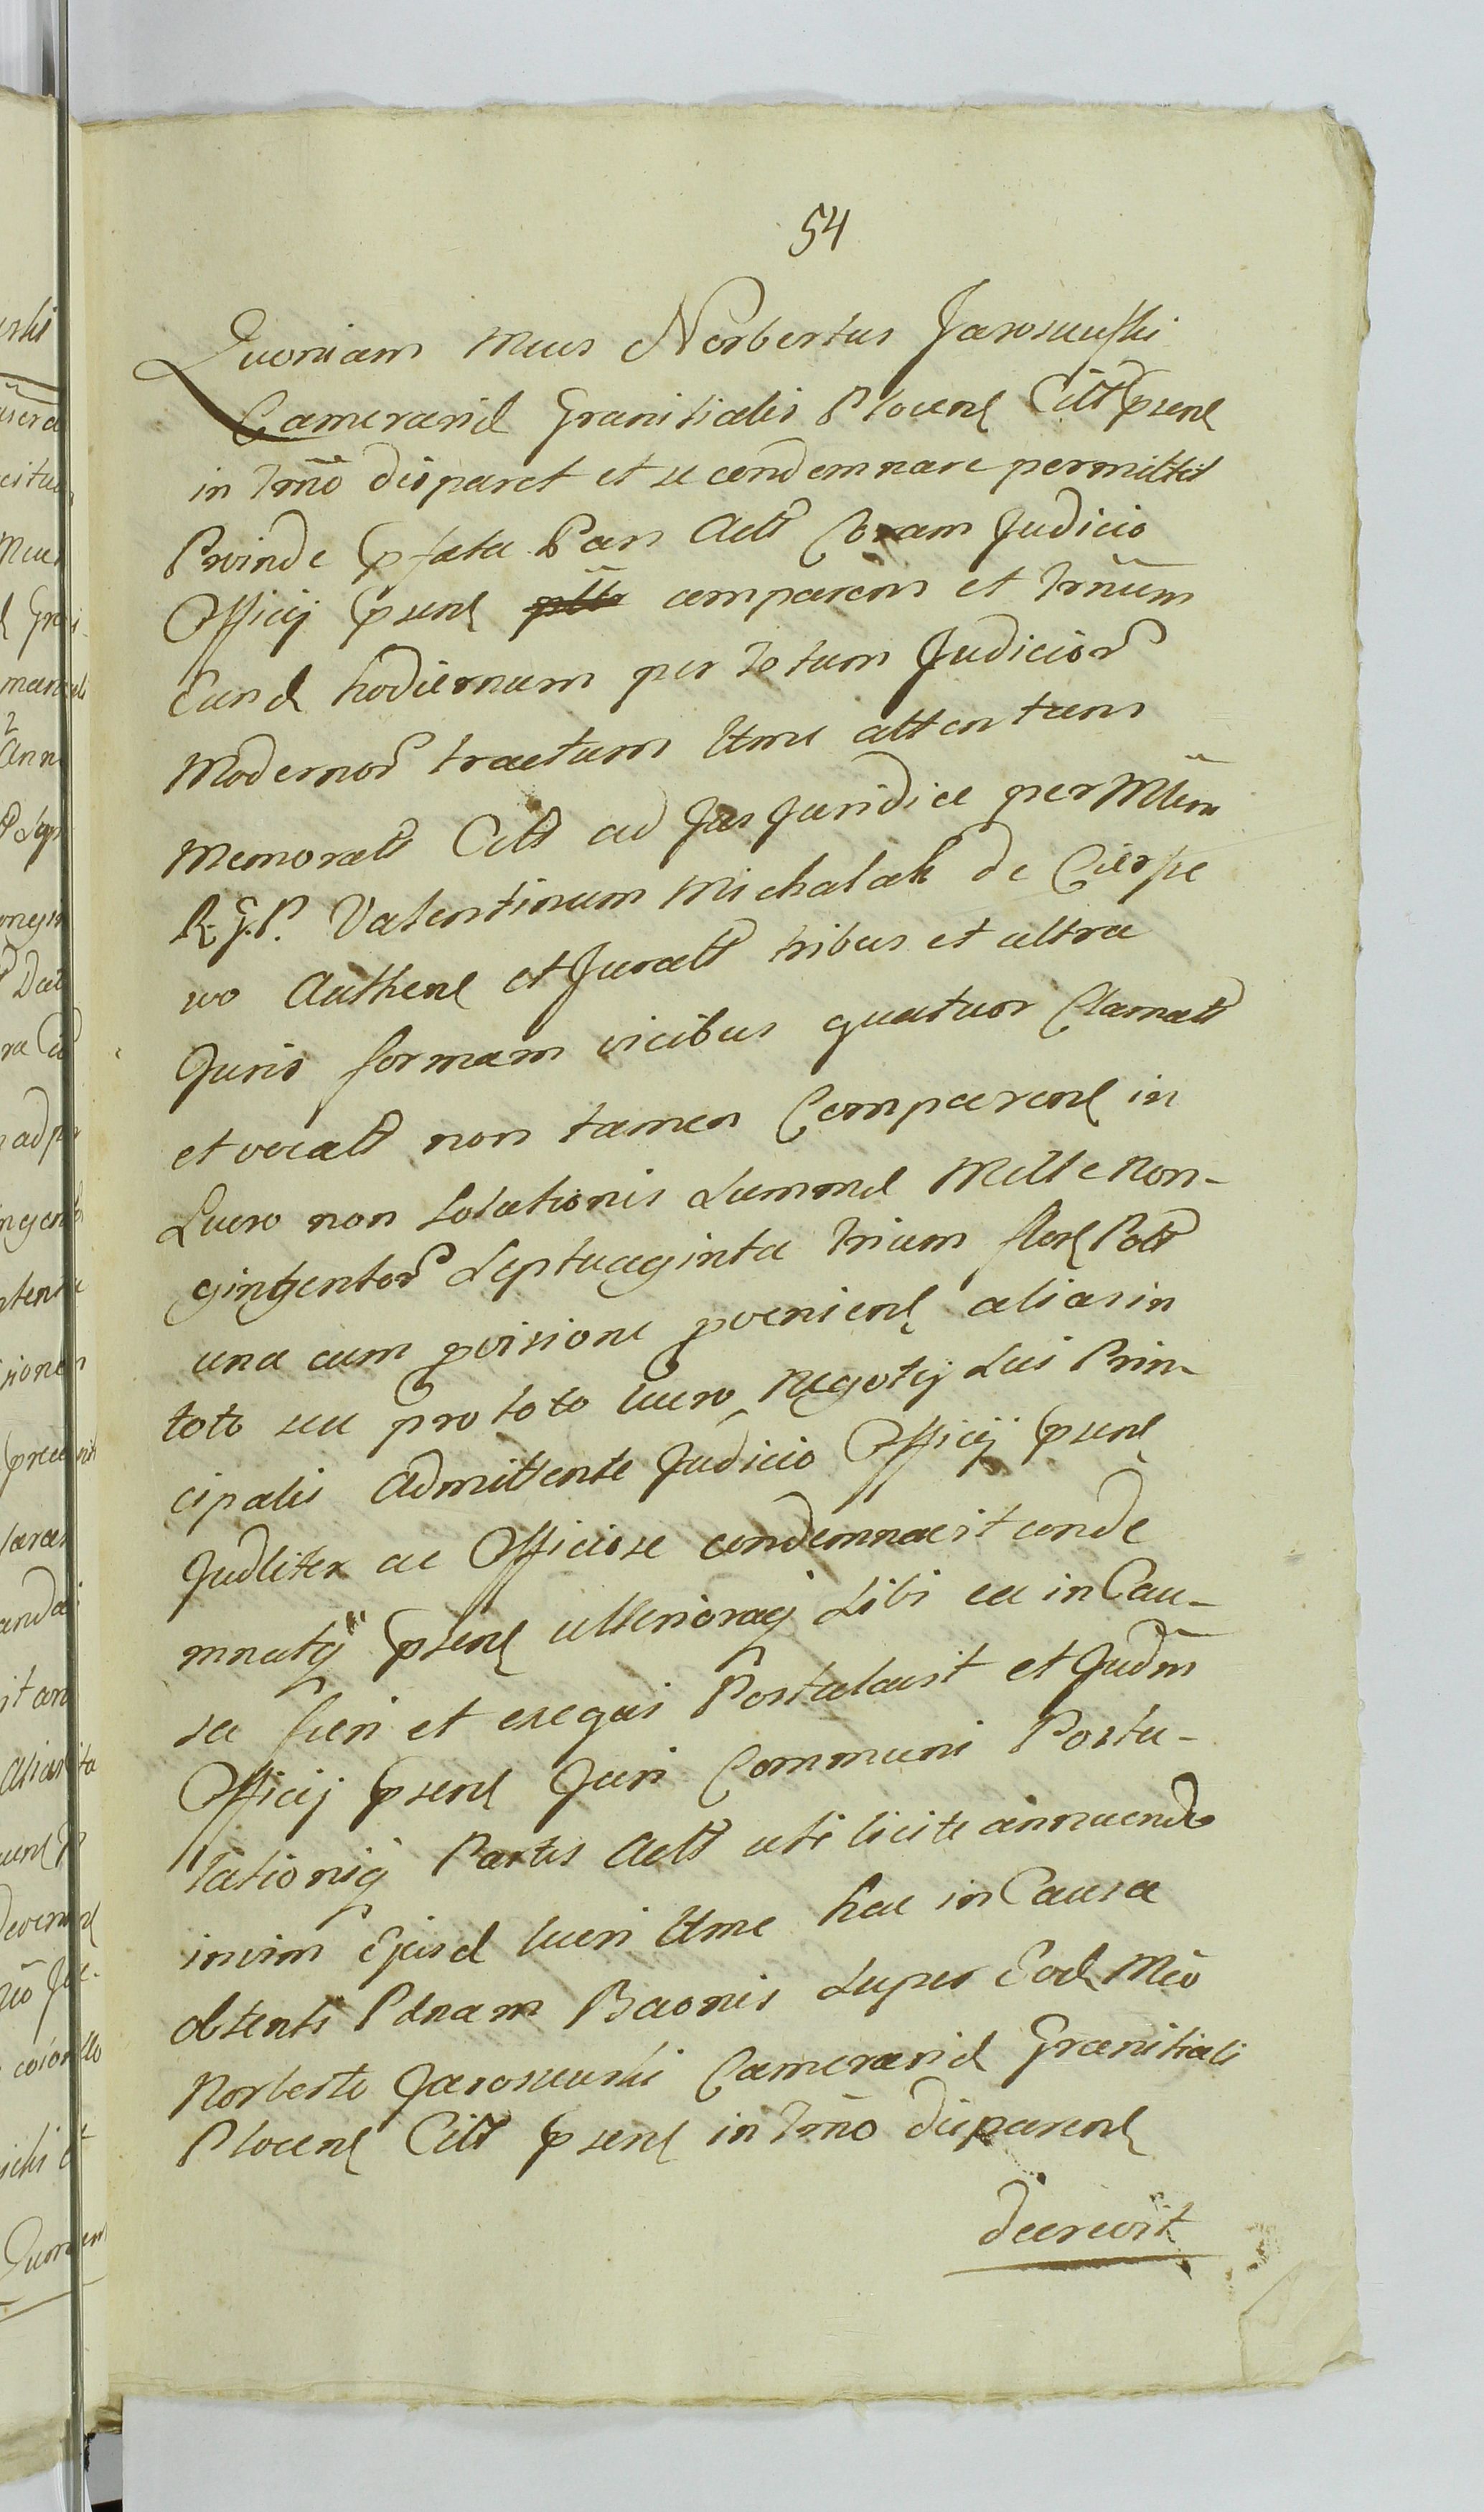 54
Quoniam Mcus Norbertus Jaroszewski
Camerarid Granitialis Plocen Citt psens
in Trmō disparet et se condemnare permittit
Proinde pfata Pars Actt Coram Judicio
Officij psens comparens et Trnūm
Eund hodiernum per totum Judicior
Modernor tractum ltme attentans
Memoratt Citt ad Jus Juridice per Mlem
R. G. P. Valentinum Michalak de Cierpe
wo Authen et Juratt tribus et ultra
Juris formam vicibus quatuor Clamatt
et vocatt non tamen Comparen in
Lucro non Solutionis Summæ Mille Non-
gingentor Septuaginta trium flor Poll
una cum pvisione pvenien alias in
toto seu pro toto lucro Negotij sui Prin-
cipalis Admittente Judicio Officij psens
Judliter ac Officiose condemnavit conde
mnatq psens ulterioraq Sibi ea in Cau-
sa fieri et exequi Postulavit et Judm
Officij psens Juri Communi Postu-
lationiq Partis Actt uti licite annuendo
in vim Ejusd lucri ltme hac in Causa
obtenti Pdnam Baonis super Eod Mco
Norberto Jaroszewski Camerarid Granitiali
Plocen Citt psens in Trmō disparen
decrevit